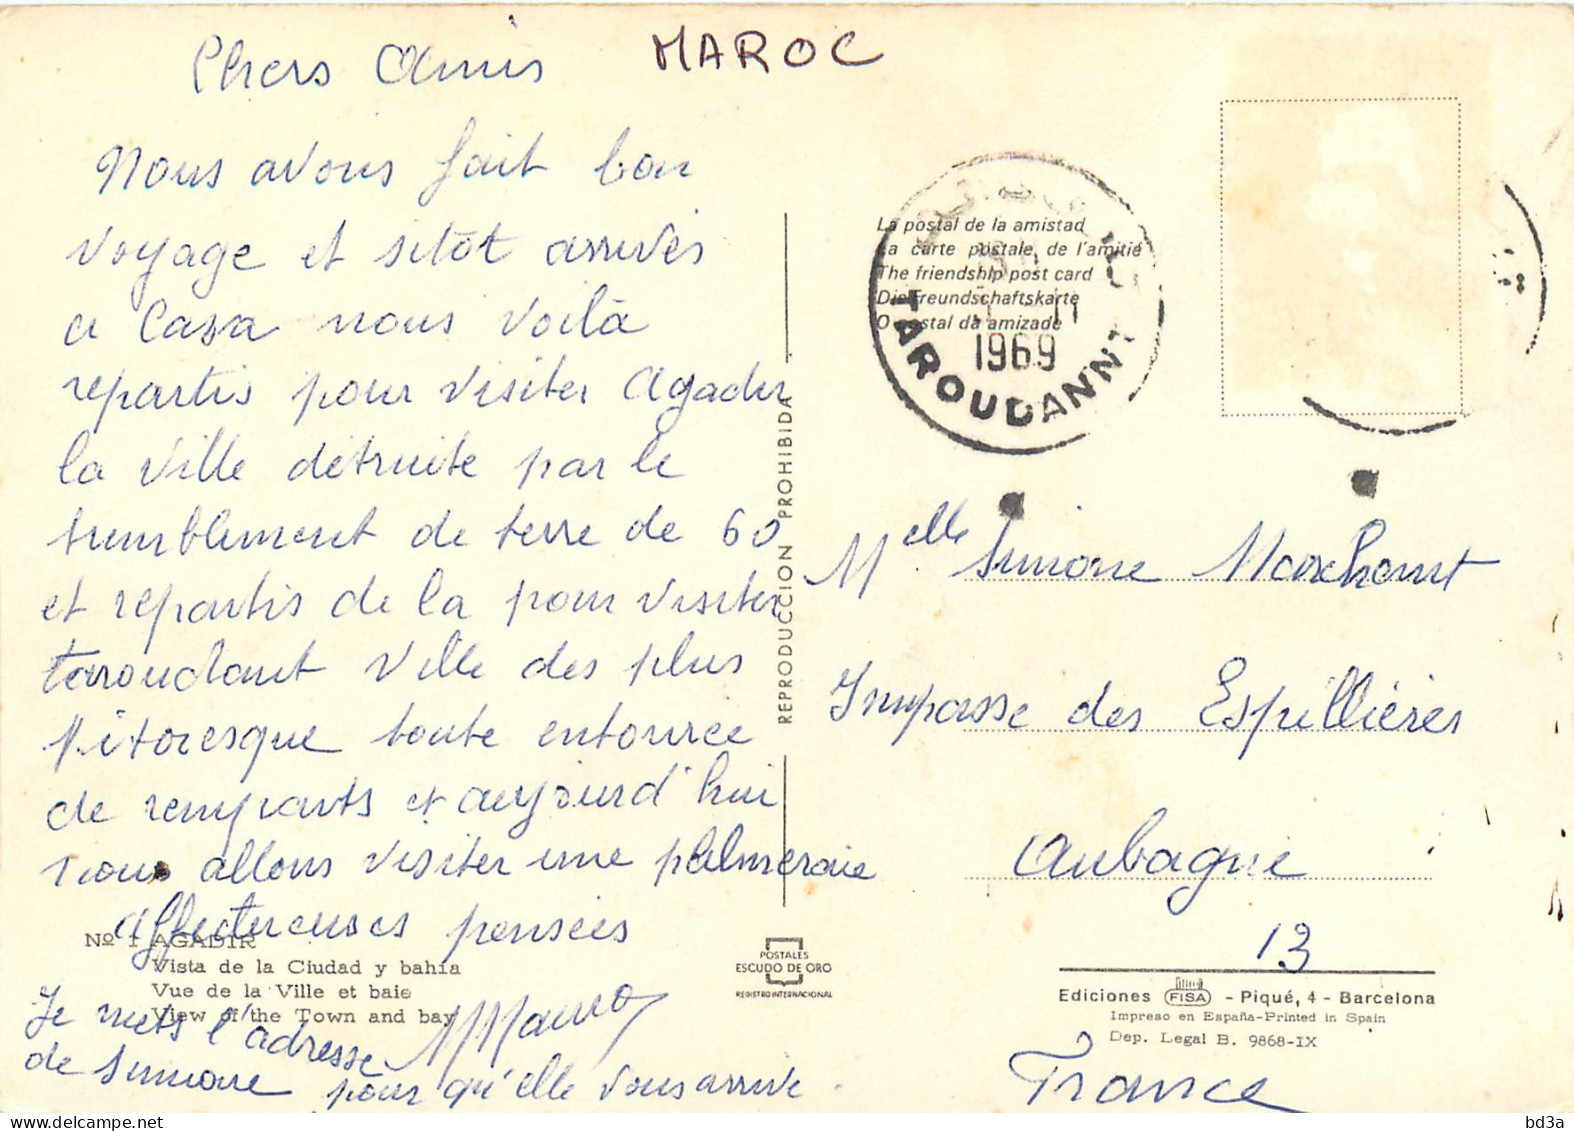 Chers Amis
MAROC
Nous avons fait bon
voyage et sitôt arrivés
a Casa nous voilà
repartis pour visiter Agadir
la ville détruite par le
tremblement de terre de 60
et repartis de la pour visiter
taroudant ville des plus
pitoresque toute entourée
de remparts et aujourd'hui
nous allons visiter une palmeraie
affectueuses pensées
Je mets l'adresse
de Simone pour qu'elle vous arrive
Nº 1 AGADIR
Vista de la Ciudad y bahía
Vue de la Ville et baie
View of the Town and bay
REPRODUCCION PROHIBIDA
POSTALES
ESCUDO DE ORO
REGISTRO INTERNACIONAL
La postal de la amistad
La carte postale de l'amitié
The friendship post card
Die Freundschaftskarte
O postal da amizade
1969
TAROUDANNT
Melle Simone Marchant
Impasse des Espillières
Aubagne
13
Ediciones FISA - Piqué, 4 - Barcelona
Impreso en España-Printed in Spain
Dep. Legal B. 9868-IX
France
delcampe.net
bd3a